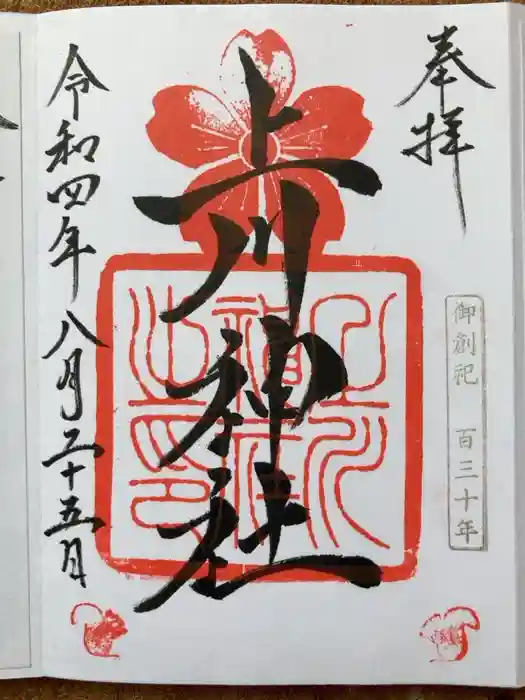 奉拝
御創祀 百三十年
上川神社
上川神社之印
令和四年八月二十五月